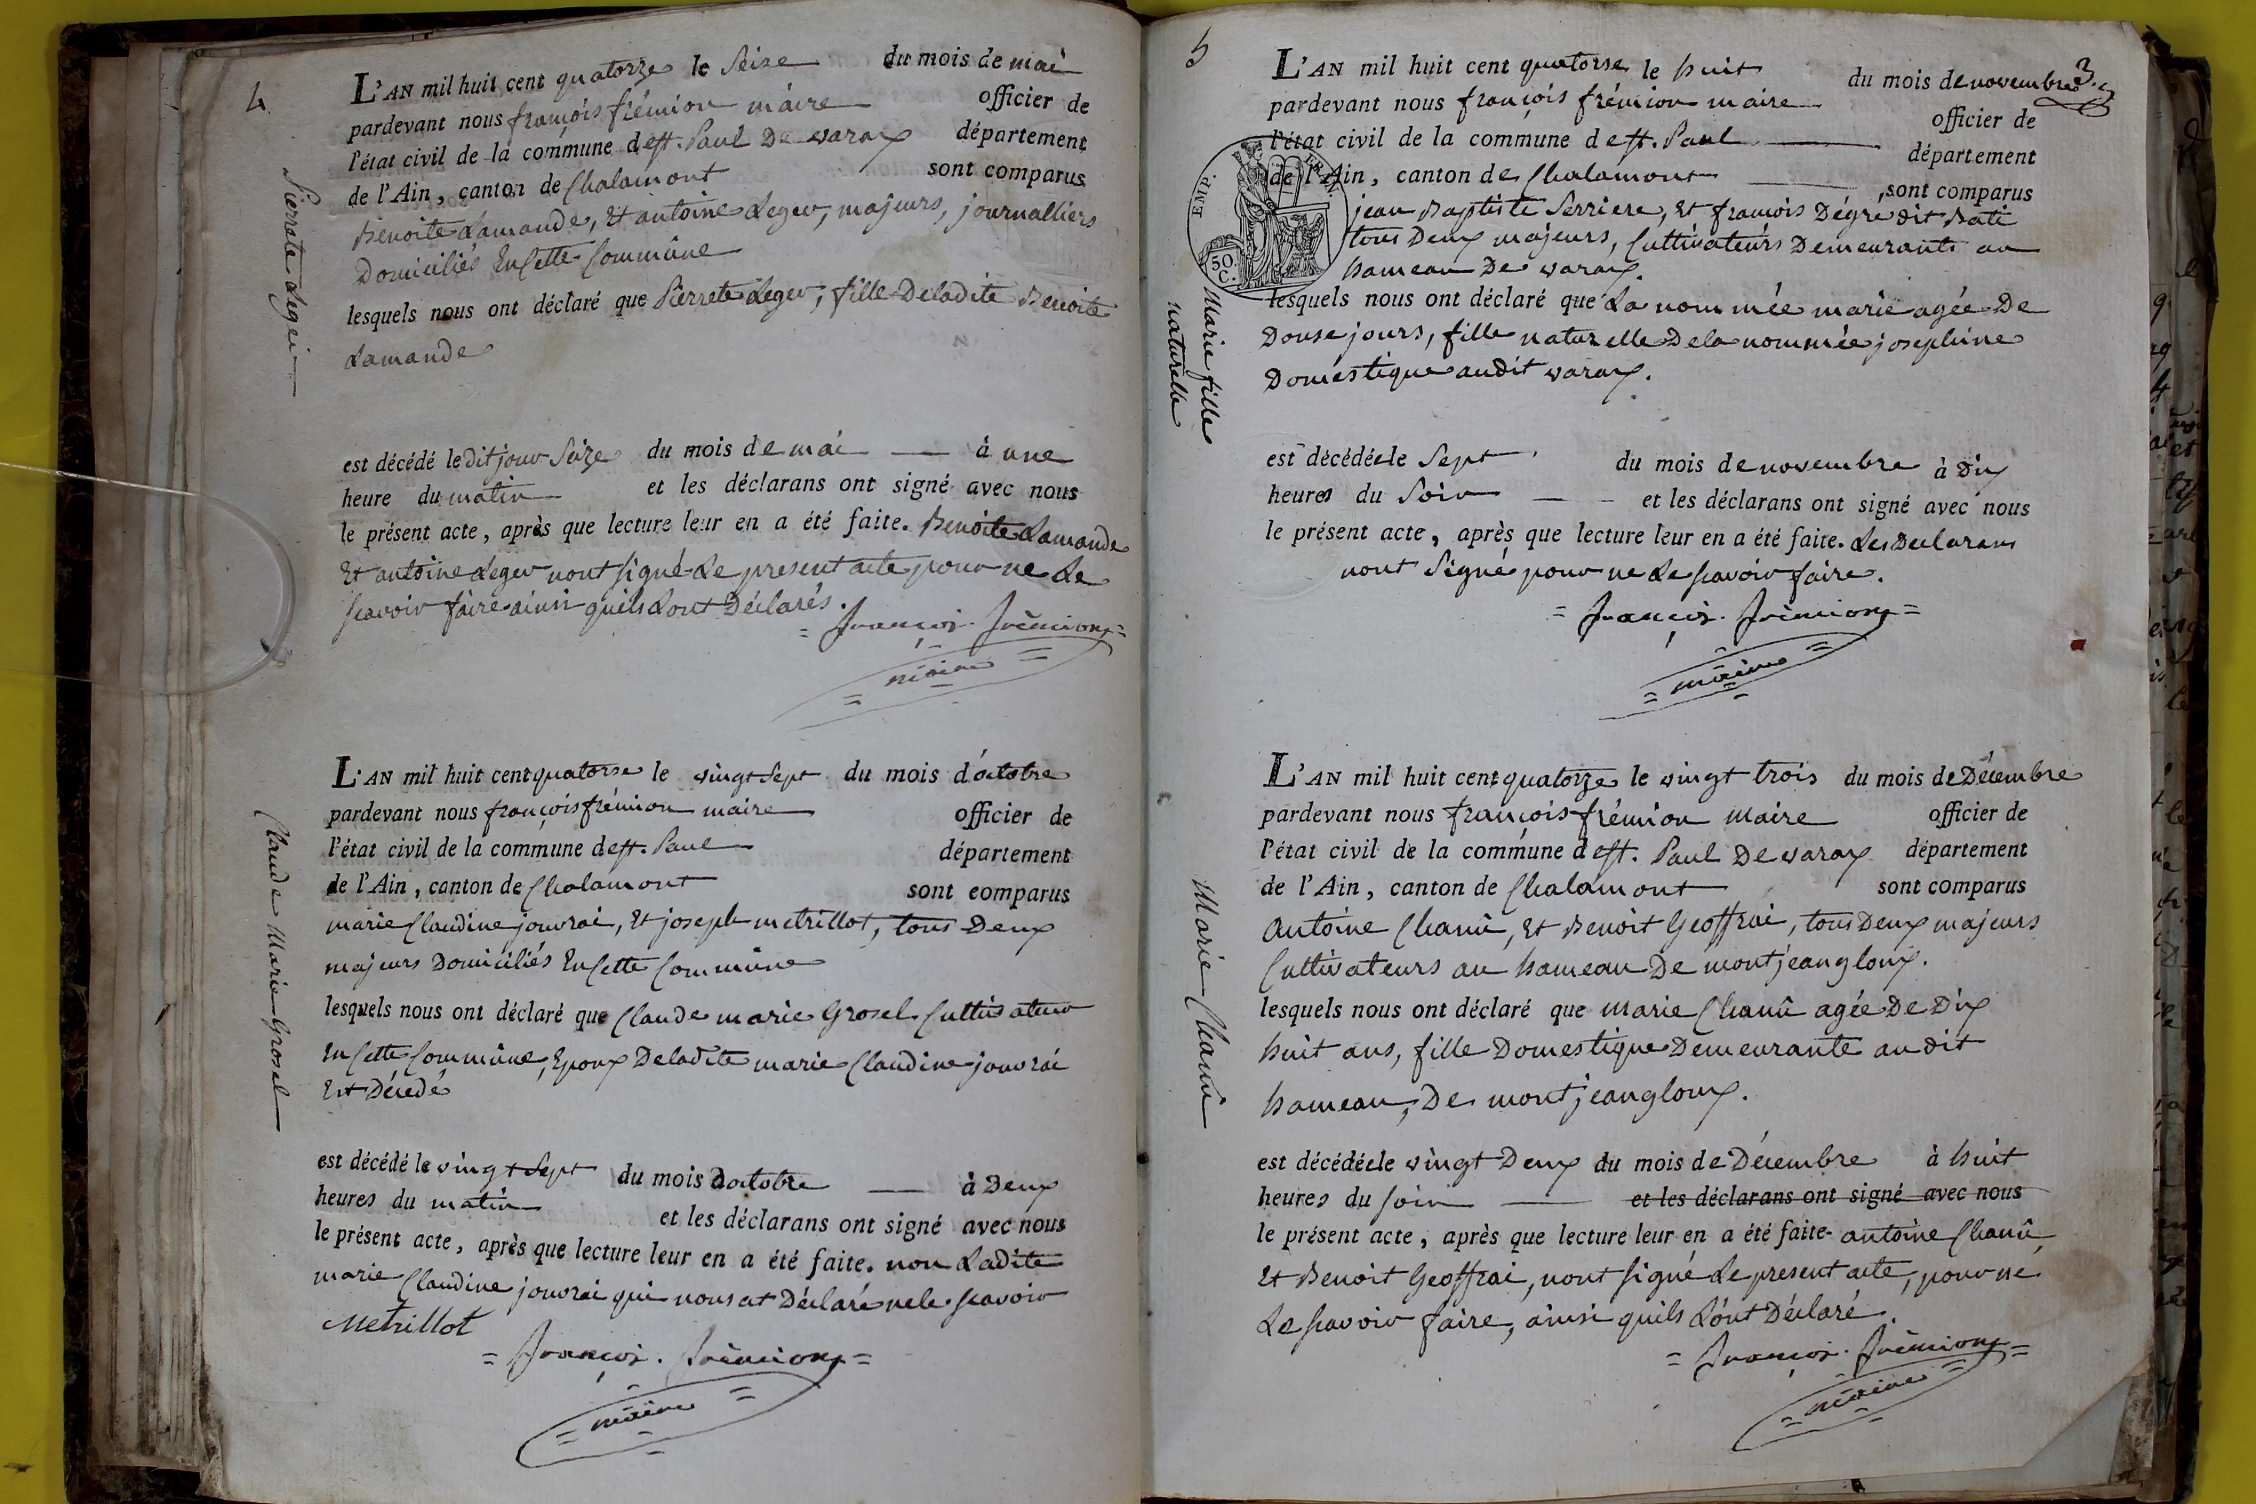 4
L'AN mil huit cent quatorze le Seise du mois de mai
pardevant nous françois frémion maire officier de
l'état civil de la commune de st. Paul De varax département
de l'Ain, canton de Chalamont sont comparus
Benoite Lamande, Et antoine Leger, majeurs, journalliers
Domiciliés En Cette Commune
lesquels nous ont déclaré que Pierrete Leger, fille De ladite Benoite
Lamande
Pierrete Leger
est décédé le dit jour Seize du mois de mai à une
heure du matin et les déclarans ont signé avec nous
le présent acte, après que lecture leur en a été faite. Benoite Lamande
Et antoine Leger nont signé Le present acte pour ne Le
scavoir faire ainsi quils Lont Déclarés.
= françois. frémion =
= maire =
L'AN mil huit cent quatorse le vingt Sept du mois d'octobre
pardevant nous françois frémion maire officier de
l'état civil de la commune de st. Paul département
de l'Ain, canton de Chalamont sont comparus
marie Claudine jouvrai, Et joseph metrillot, tous Deux
majeurs Domiciliés En Cette Commune
lesquels nous ont déclaré que Claude marie Grosel Cultivateur
En Cette Commune, Epoux De ladite marie Claudine jouvrai
Est Décédé
Claude Marie Grosel
est décédé le vingt Sept du mois Doctobre à Deux
heures du matin et les déclarans ont signé avec nous
le présent acte, après que lecture leur en a été faite. non Ladite
marie Claudine jouvrai qui nous at Déclaré ne le scavoir
Metrillot
= françois. frémion =
= maire =
5
3.
L'AN mil huit cent quatorse le huit du mois de novembre
pardevant nous françois frémion maire officier de
l'état civil de la commune de st. Paul département
de l'Ain, canton de Chalamont sont comparus
EMP. FR.
50 C.
jean Baptiste Serriere, Et françois Dégre dit Bati
tous Deux majeurs, Cultivateurs Demeurants au
hameau De varax.
lesquels nous ont déclaré que La nommée marie agée De
Douse jours, fille naturelle De la nommée josephine
Domestique audit varax.
Marie fille
naturelle
est décédée le Sept du mois de novembre à Dix
heures du Soir et les déclarans ont signé avec nous
le présent acte, après que lecture leur en a été faite. Les Declarans
nont Signé pour ne Le scavoir faire.
= françois. frémion =
= maire =
L'AN mil huit cent quatorze le vingt trois du mois de Décembre
pardevant nous françois frémion maire officier de
l'état civil de la commune de st. Paul De varax département
de l'Ain, canton de Chalamont sont comparus
Antoine Chanû, Et Benoit Geoffrai, tous Deux majeurs
Cultivateurs au hameau De montjeangloux.
lesquels nous ont déclaré que marie Chanû agée De Dix
huit ans, fille Domestique Demeurante au dit
hameau, De montjeangloux.
Marie Chanû
est décédée le vingt Deux du mois de Décembre à huit
heures du soir et les déclarans ont signé avec nous
le présent acte, après que lecture leur en a été faite. antoine Chanû
Et Benoit Geoffrai, nont signé Le present acte, pour ne
Le scavoir faire, ainsi quils Lont Déclaré.
= françois. frémion =
= maire =